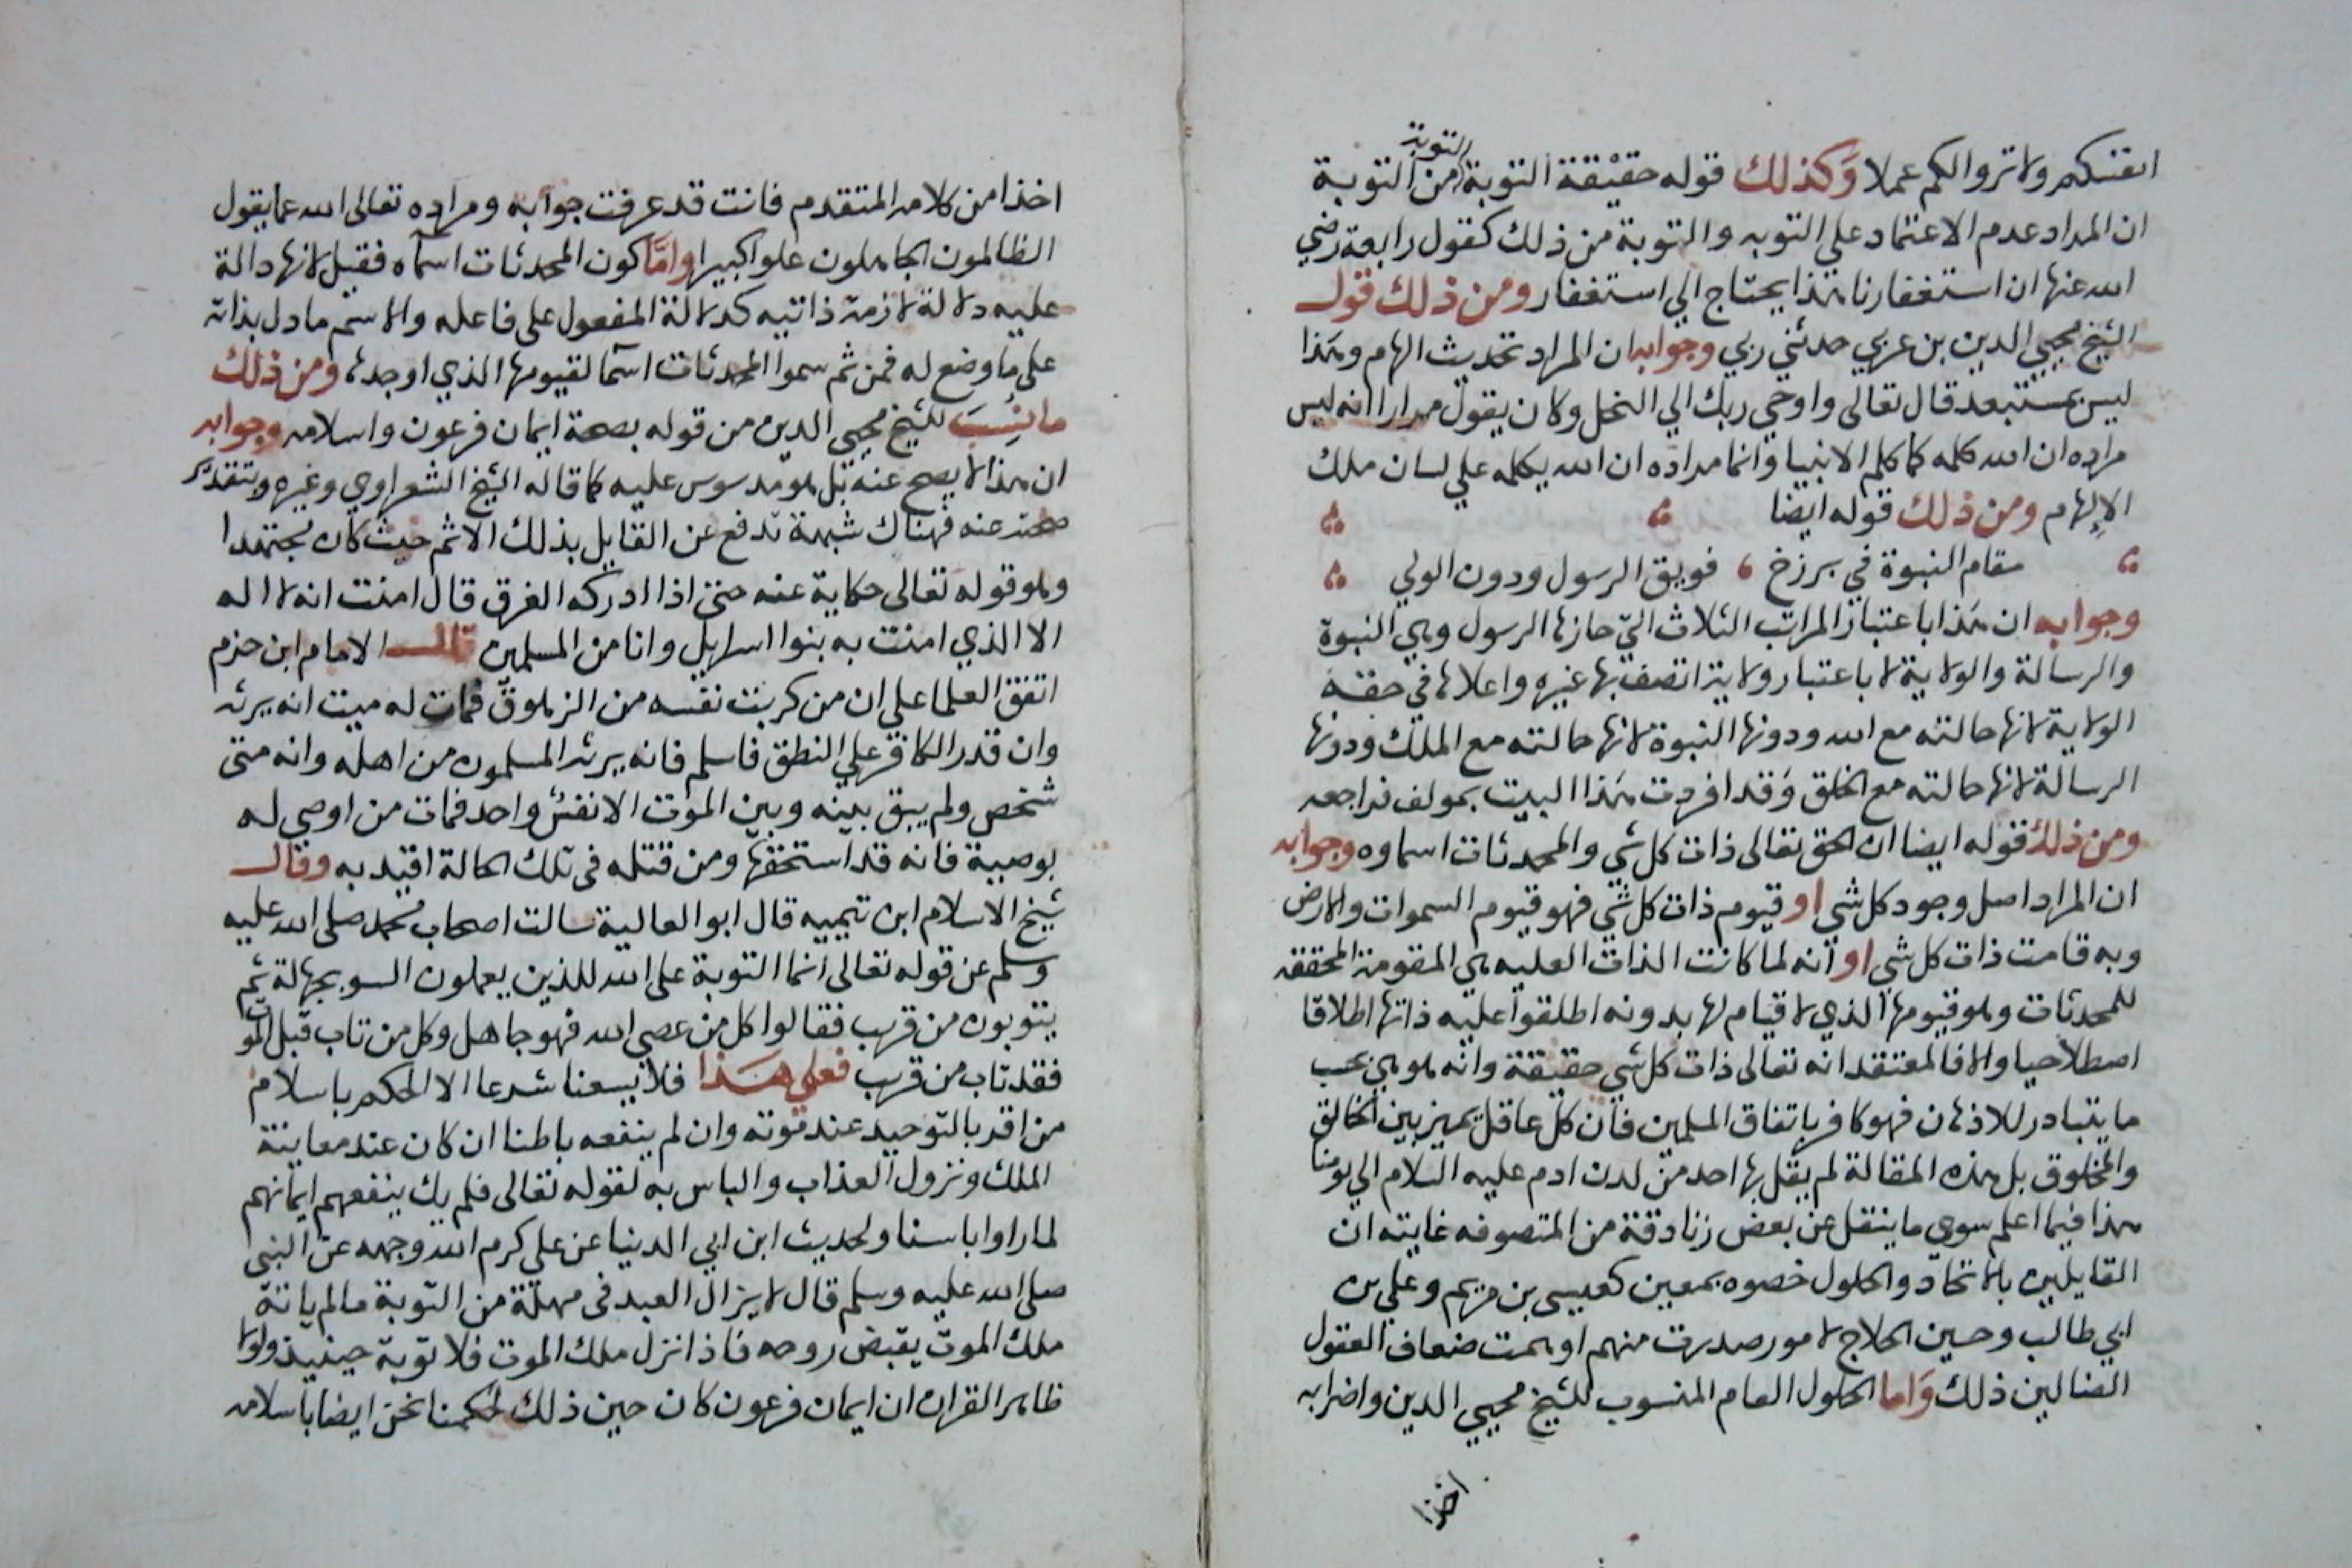 انفسكم ولا تروا لكم عملا وكذلك قوله حقيقة التوبة التوبة من التوبة
ان المراد عدم الاعتماد على التوبه والتوبة من ذلك كقول رابعة رضي
الله عنها ان استغفارنا هذا يحتاج الي استغفار ومن ذلك قول
الشيخ محيي الدين بن عربي حدثني ربي وجوابه ان المراد تحديث الهام وهذا
ليس بمستبعد قال تعالى واوحي ربك الي النحل وكان يقول مرارا انه ليس
مراده ان الله كلمه كما كلم الانبيا وانما مراده ان الله يكلمه علي لسان ملك
الإلهام ومن ذلك قوله ايضا
مقام النبوة في برزخ ، فويق الرسول ودون الولي
وجوابه ان هذا باعتبار المراتب الثلاث التي حازها الرسول وهي النبوة
والرسالة والولاية لا باعتبار ولاية اتصف بها غيره واعلاها في حقه
الولاية لانها حالته مع الله ودونها النبوة لانها حالته مع الملك ودونها
الرسالة لانها حالته مع الخلق وقد افردت هذا البيت بمولف فراجعه
ومن ذلك قوله ايضا ان الحق تعالى ذات كل شي والمحدثات اسماوه وجوابه
ان المراد اصل وجود كل شي او قيوم ذات كل شي فهو قيوم السموات والارض
وبه قامت ذات كل شي او انه لما كانت الذات العليه هي المقومة المحققه
للمحدثات وهو قيومها الذي لا قيام لها بدونه اطلقوا عليه ذاتها اطلاقا
اصطلاحيا والا فالمعتقد انه تعالى ذات كل شي حقيقة وانه هو هي بحسب
ما يتبادر للاذهان فهو كافر باتفاق المسلمين فان كل عاقل يميز بين الخالق
والمخلوق بل هذه المقالة لم يقل بها احد من لدن ادم عليه السلام الي يومنا
هذا فيما اعلم سوي ما ينقل عن بعض زنادقة من المتصوفه غايته ان
القايلين بالاتحاد والحلول خصوه بمعين كعيسى بن مريم وعلي بن
ابي طالب وحسين الحلاج لامور صدرت منهم اوهمت ضعاف العقول
الضالين ذلك واما الحلول العام المنسوب للشيخ محيي الدين واضرابه
اخذا
اخذا من كلامه المتقدم فانت قد عرفت جوابه ومراده تعالى الله عما يقول
الظالمون الجاهلون علوا كبيرا واما كون المحدثات اسمآه فقيل لانها دالة
عليه دلالة لازمة ذاتيه كدلالة المفعول على فاعله والاسم ما دل بذاته
على ما وضع له فمن ثم سموا المحدثات اسمآ لقيومها الذي اوجدها ومن ذلك
ما نسب للشيخ محيي الدين من قوله بصحة ايمان فرعون واسلامه وجوابه
ان هذا لا يصح عنه بل هو مدسوس عليه كما قاله الشيخ الشعراوي وغيره وبتقدير
صحته عنه فهناك شبهة تدفع عن القايل بذلك الاثم حيث كان مجتهدا
وهو قوله تعالى حكاية عنه حتى اذا ادركه الغرق قال امنت انه لا اله
الا الذي امنت به بنوا اسرايل وانا من المسلمين قال الامام ابن حزم
اتفق العلما على ان من كربت نفسه من الزهوق فمات له ميت انه يرثه
وان قدر الكافر علي النطق فاسلم فانه يرثه المسلمون من اهله وانه متى
شخص ولم يبق بينه وبين الموت الا نفس واحد فمات من اوصي له
بوصية فانه قد استحقها ومن قتله في تلك الحالة اقيد به وقال
شيخ الاسلام ابن تيميه قال ابو العالية سالت اصحاب محمد صلى الله عليه
وسلم عن قوله تعالى انما التوبة على الله للذين يعملون السو بجهالة ثم
يتوبون من قريب فقالوا كل من عصى الله فهو جاهل وكل من تاب قبل الموت
فقد تاب من قريب فعلي هذا فلا يسعنا شرعا الا الحكم باسلام
من اقر بالتوحيد عند موته وان لم ينفعه باطنا ان كان عند معاينة
الملك ونزول العذاب والباس به لقوله تعالى فلم يك ينفعهم ايمانهم
لما راوا باسنا ولحديث ابن ابي الدنيا عن علي كرم الله وجهه عن النبي
صلى الله عليه وسلم قال لا يزال العبد في مهلة من التوبة ما لم ياته
ملك الموت يقبض روحه فاذا نزل ملك الموت فلا توبة حينيذ ولولا
ظاهر القران ان ايمان فرعون كان حين ذلك لحكمنا نحن ايضا باسلامه